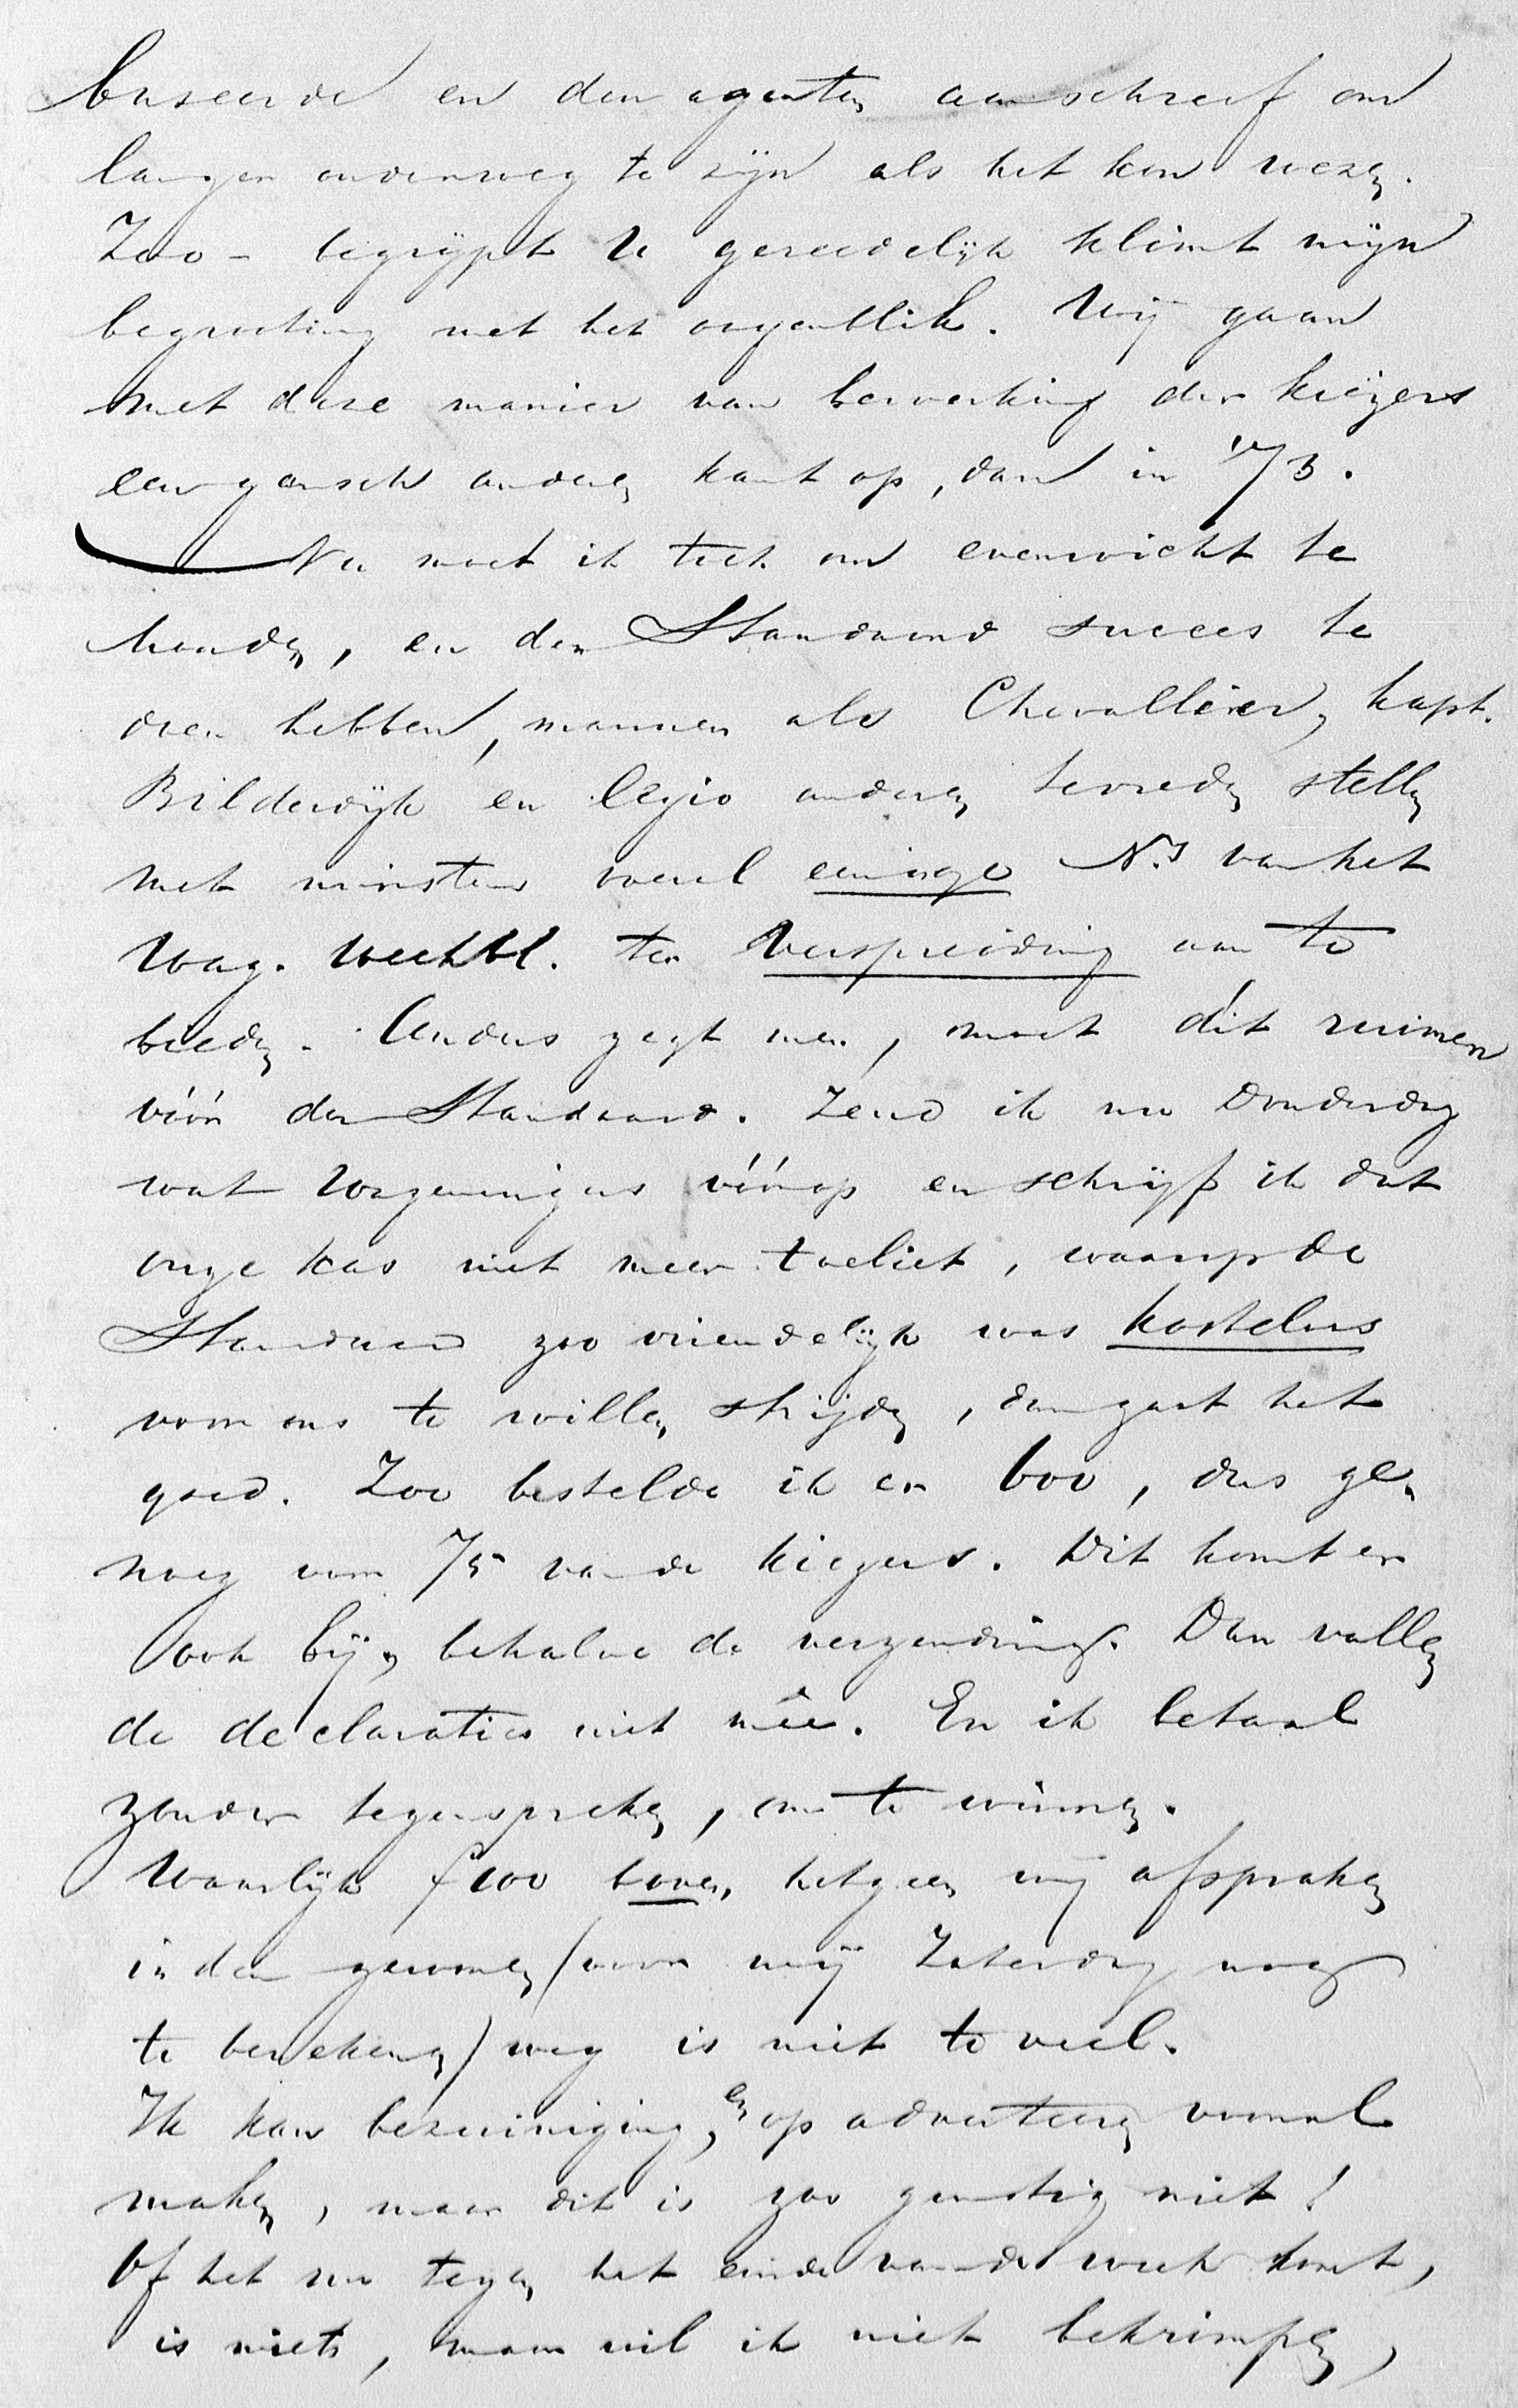 en den agenten aanschreef om
langer onderweg te zijn als het kon wezen.
Zoo - begrijpt U gereedelijk klimt mijn
begrooting met het oogenblik. Wij gaan
met deze manier van bewerking der kiezers
een gansch anderen kant op, dan in '73.
Nu moet ik toch om evenwicht te
houden, en den Standaard succes te
doen hebben, mannen als Chevallier, kapt.
Bilderdijk en legio anderen tevreden stellen
met minstens eenige Nrs van het
Wag. Weekbl. ter verspreiding aan te
bieden. Anders zegt men, moet dit ruimen
vóór den Standaard. Zend ik nu Donderdag
wat Wageningers vóórop en schrijf ik dat
onze kas niet meer toeliet, waarop de
Standaard zoo vriendelijk was kosteloos
voor ons te willen strijden, dan gaat het
goed. Zoo bestelde ik er 600, dus ge-
noeg voor 75 van de kiezers. Dit komt er
ook bij, behalve de verzending. Dan vallen
de declaraties niet meê. En ik betaal
zonder tegenspreken, om te winnen.
Waarlijk f 100 boven hetgeen wij afspraken
in den (voor mij Zaterdag nog
te berekenen) weg is niet te veel.
Ik kan bezuinigingen, op adverteeren vooral
maken, maar dit is zoo gunstig niet!
Of het nu tegen het einde van de week komt,
is niets, maar wil ik niet bekrimpen,